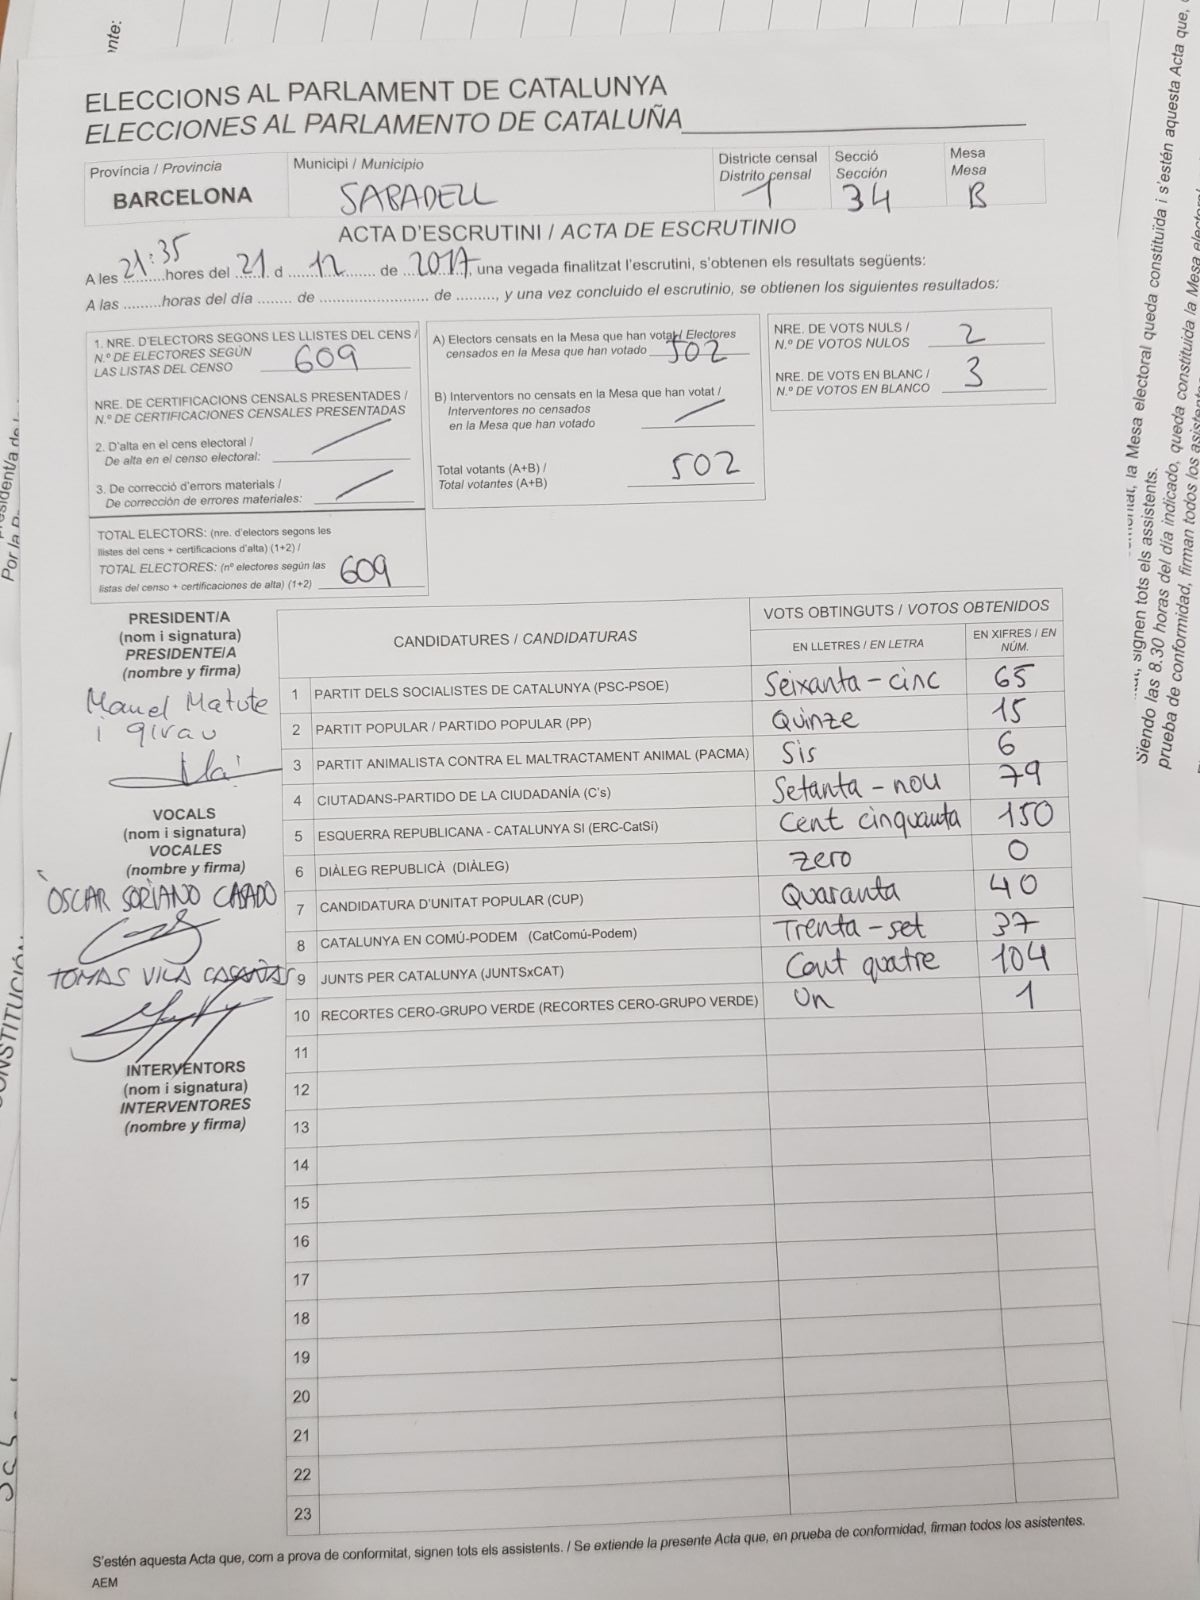 ELECCIONS AL PARLAMENT DE CATALUNYA
ELECCIONES AL PARLAMENTO DE CATALUÑA
Província / Provincia
BARCELONA
Municipi / Municipio
SABADELL
Districte censal
Distrito censal
1
Secció
Sección
34
Mesa
Mesa
B
ACTA D'ESCRUTINI / ACTA DE ESCRUTINIO
A les 21:35 hores del 21 d 12 de 2017, una vegada finalitzat l'escrutini, s'obtenen els resultats següents:
A las .........horas del día ........ de ......................... de ........., y una vez concluido el escrutinio, se obtienen los siguientes resultados:
1. NRE. D'ELECTORS SEGONS LES LLISTES DEL CENS /
N.º DE ELECTORES SEGÚN
LAS LISTAS DEL CENSO 609
NRE. DE CERTIFICACIONS CENSALS PRESENTADES /
N.º DE CERTIFICACIONES CENSALES PRESENTADAS
2. D'alta en el cens electoral /
De alta en el censo electoral:
3. De correcció d'errors materials /
De corrección de errores materiales:
TOTAL ELECTORS: (nre. d'electors segons les
llistes del cens + certificacions d'alta) (1+2) /
TOTAL ELECTORES: (nº electores según las
listas del censo + certificaciones de alta) (1+2) 609
A) Electors censats en la Mesa que han votat / Electores
censados en la Mesa que han votado 502
B) Interventors no censats en la Mesa que han votat /
Interventores no censados
en la Mesa que han votado
Total votants (A+B) /
Total votantes (A+B) 502
NRE. DE VOTS NULS /
N.º DE VOTOS NULOS 2
NRE. DE VOTS EN BLANC /
N.º DE VOTOS EN BLANCO 3
PRESIDENT/A
(nom i signatura)
PRESIDENTE/A
(nombre y firma)
Manel Matute
i girau
VOCALS
(nom i signatura)
VOCALES
(nombre y firma)
ÒSCAR SORIANO CASADO
TOMAS VILA CASAÑAS
INTERVENTORS
(nom i signatura)
INTERVENTORES
(nombre y firma)
CANDIDATURES / CANDIDATURAS
VOTS OBTINGUTS / VOTOS OBTENIDOS
EN LLETRES / EN LETRA
EN XIFRES / EN
NÚM.
1 PARTIT DELS SOCIALISTES DE CATALUNYA (PSC-PSOE) Seixanta-cinc 65
2 PARTIT POPULAR / PARTIDO POPULAR (PP) Quinze 15
3 PARTIT ANIMALISTA CONTRA EL MALTRACTAMENT ANIMAL (PACMA) Sis 6
4 CIUTADANS-PARTIDO DE LA CIUDADANÍA (C's) Setanta-nou 79
5 ESQUERRA REPUBLICANA - CATALUNYA SI (ERC-CatSí) Cent cinquanta 150
6 DIÀLEG REPUBLICÀ (DIÀLEG) zero 0
7 CANDIDATURA D'UNITAT POPULAR (CUP) Quaranta 40
8 CATALUNYA EN COMÚ-PODEM (CatComú-Podem) Trenta-set 37
9 JUNTS PER CATALUNYA (JUNTSxCAT) Cent quatre 104
10 RECORTES CERO-GRUPO VERDE (RECORTES CERO-GRUPO VERDE) Un 1
11
12
13
14
15
16
17
18
19
20
21
22
23
S'estén aquesta Acta que, com a prova de conformitat, signen tots els assistents. / Se extiende la presente Acta que, en prueba de conformidad, firman todos los asistentes.
AEM
la Mesa electoral queda constituïda i s'estén aquesta Acta que,
signen tots els assistents.
Siendo las 8.30 horas del día indicado, queda constituida la Mesa
prueba de conformidad, firman todos los